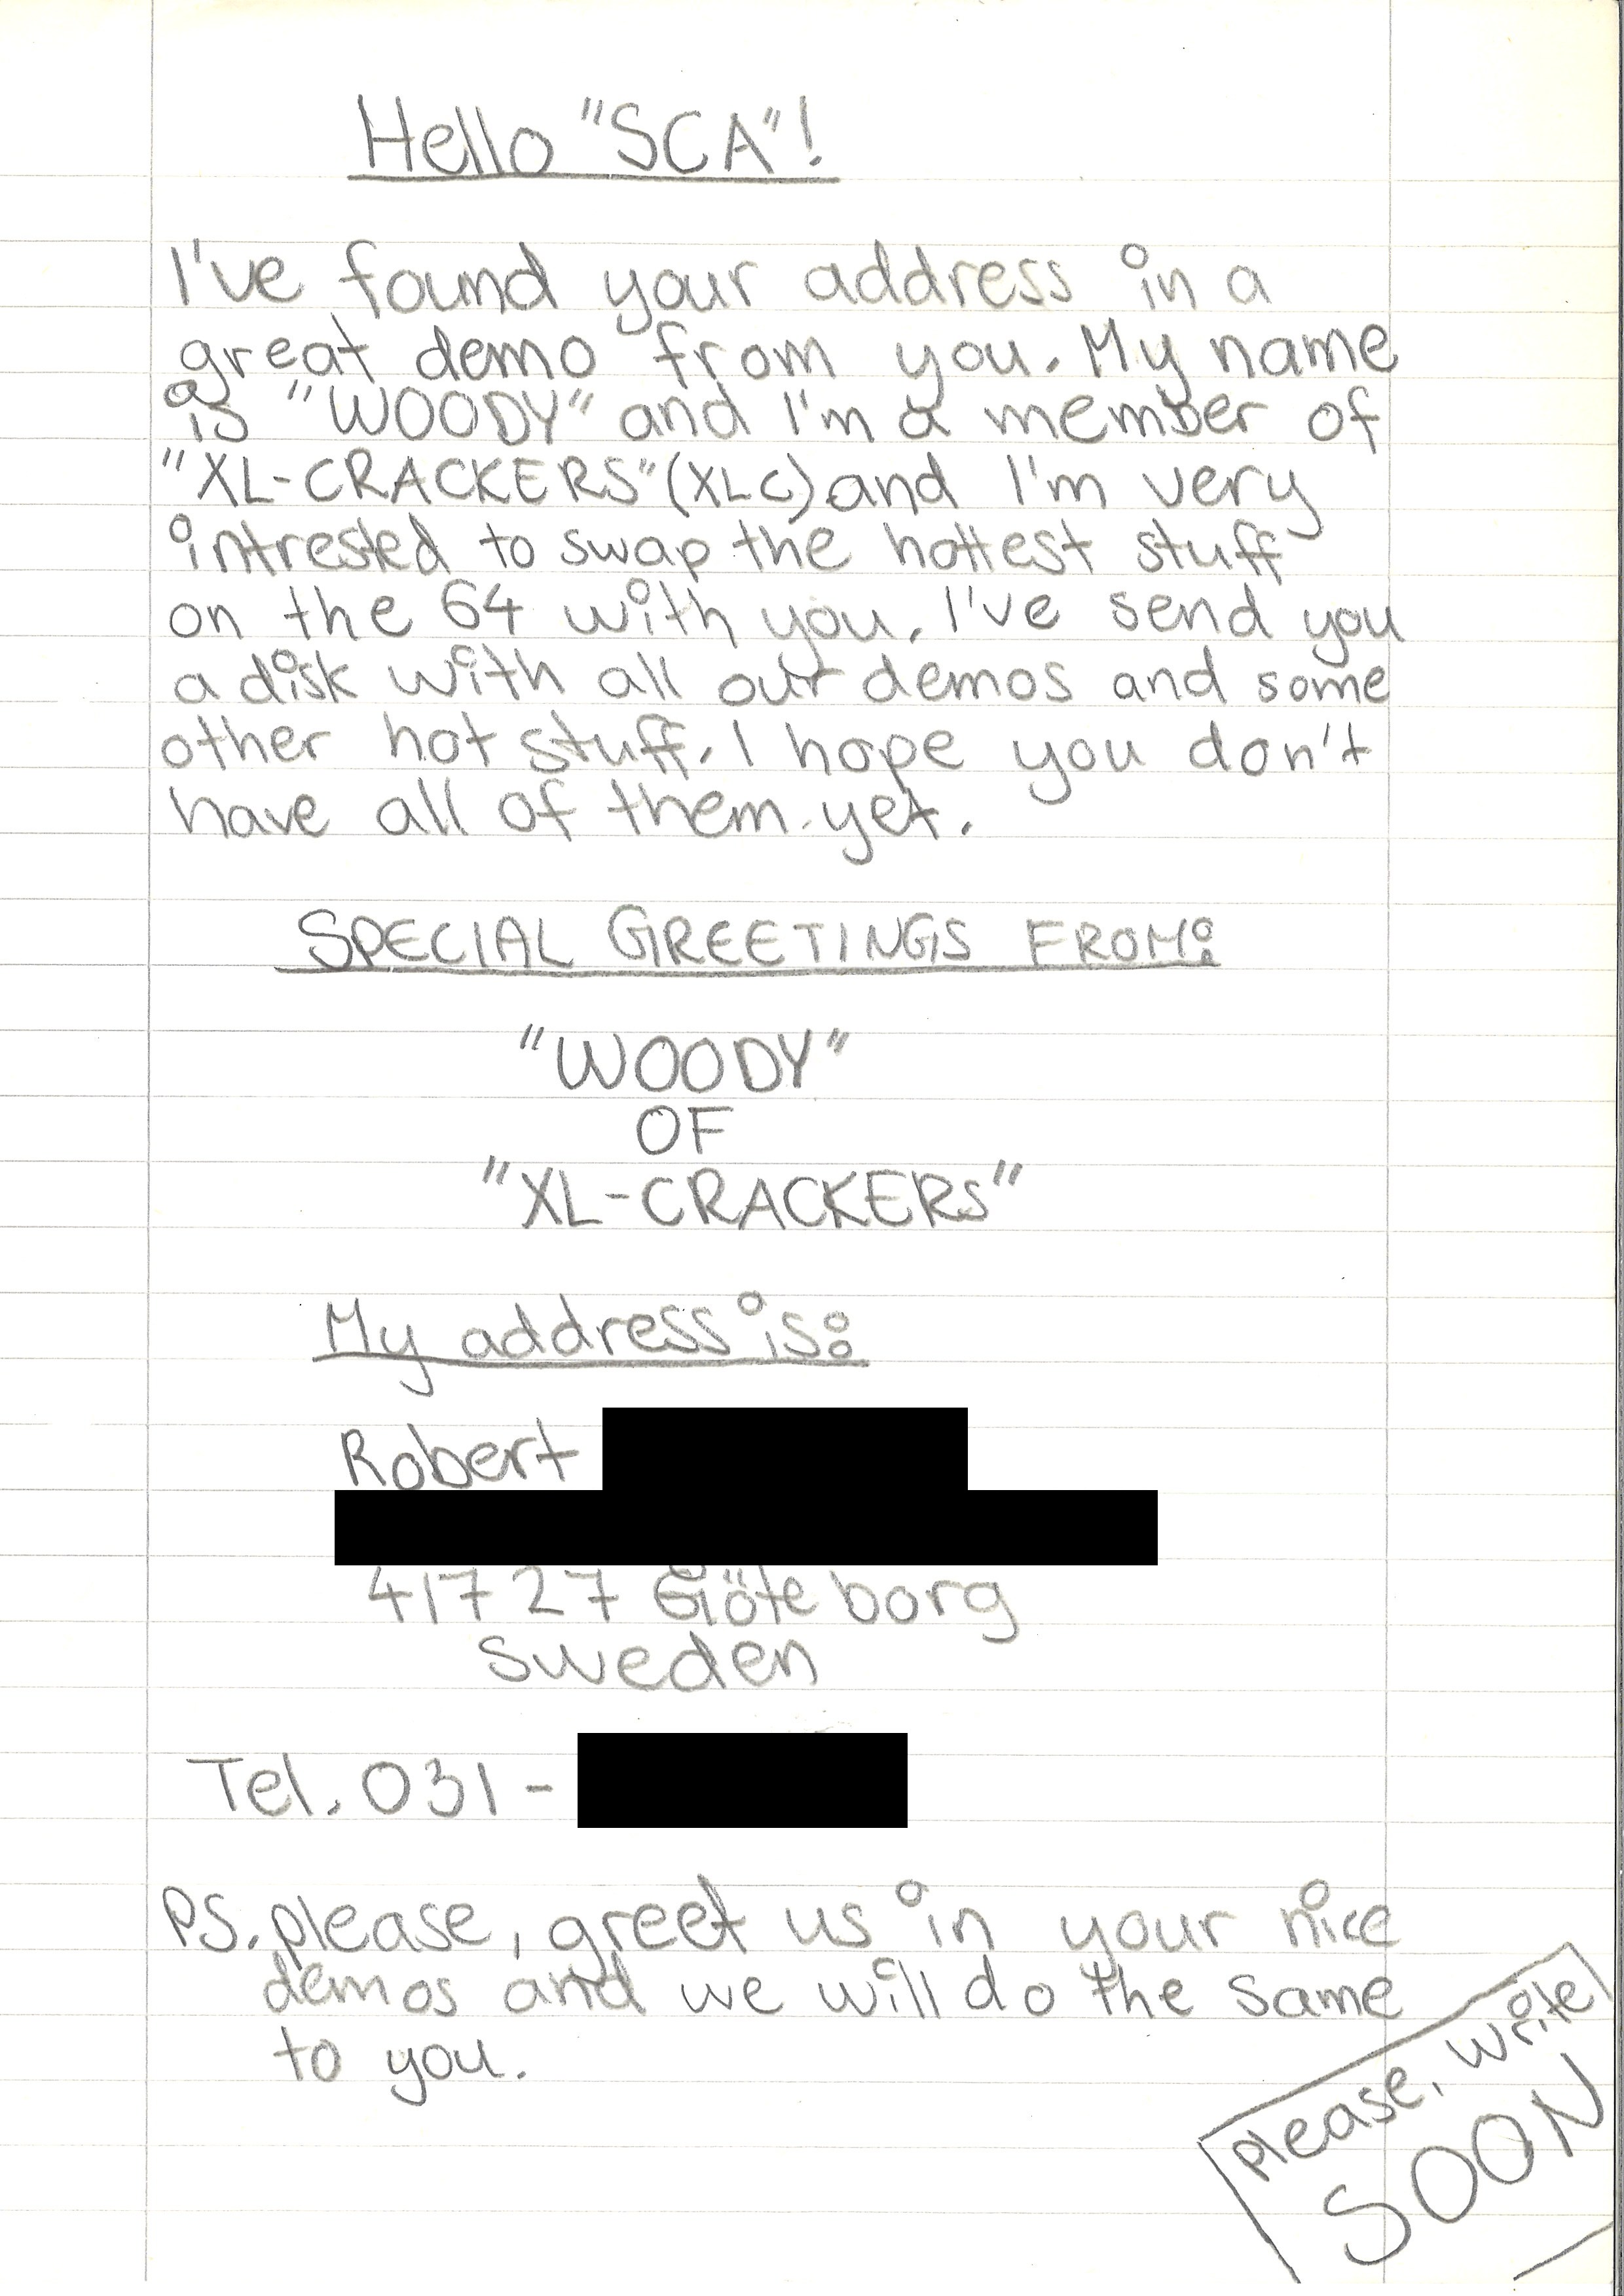 Hello "SCA"!
I've found your address in a
great demo from you. My name
is "WOODY" and I'm a member of
"XL-CRACKERS"(XLC) and I'm very
intrested to swap the hottest stuff
on the 64 with you. I've send you
a disk with all our demos and some
other hot stuff. I hope you don't
have all of them yet.
SPECIAL GREETINGS FROM:
"WOODY"
OF
"XL-CRACKERS"
My address is:
Robert
417 27 Göteborg
Sweden
Tel. 031-
PS. please, greet us in your nice
demos and we will do the same
to you.
Please, write
SOON